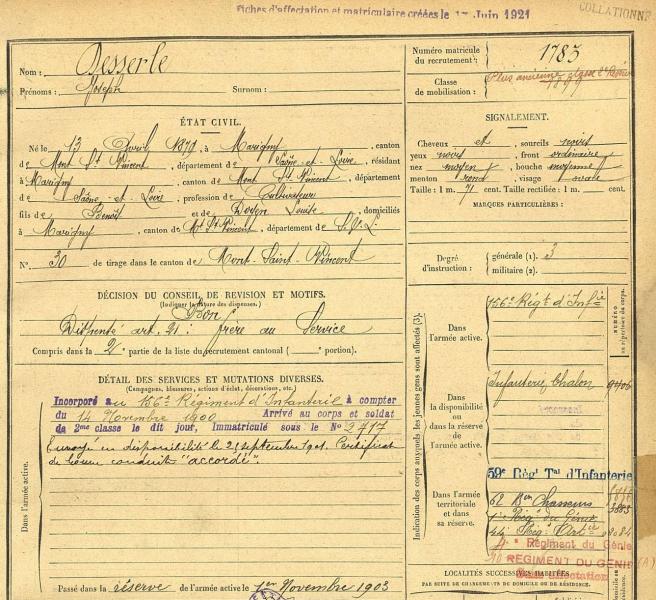 Fiches d'affectation et matriculaire créées le 1er Juin 1921
COLLATIONNÉ
Nom : Desserle
Prénoms : Joseph Surnom :
Numéro matricule du recrutement : 1783
Classe de mobilisation : 1899
ÉTAT CIVIL.
Né le 13 Avril 1879, à Marigny, canton
de Mont St Vincent, département de Saône-et-Loire, résidant
à Marigny, canton de Mont St Vincent, département
de Saône-et-Loire, profession de Cultivateur
fils de Benoît et de Dodon Louise, domiciliés
à Marigny, canton de Mt St Vincent, département de S.&L.
N° 30 de tirage dans le canton de Mont-Saint-Vincent
SIGNALEMENT.
Cheveux et , sourcils noirs
yeux noirs, front ordinaire
nez moyen, bouche moyenne
menton rond, visage ovale
Taille : 1 m. 71 cent. Taille rectifiée : 1 m. cent.
MARQUES PARTICULIÈRES :
Degré d'instruction : générale (1). 3
militaire (2).
DÉCISION DU CONSEIL DE REVISION ET MOTIFS.
(Indiquer la nature des dispenses.)
Bon
Dispensé art. 21 : frère au Service
Compris dans la 2e partie de la liste du recrutement cantonal ( e portion).
DÉTAIL DES SERVICES ET MUTATIONS DIVERSES.
(Campagnes, blessures, actions d'éclat, décorations, etc.)
Dans l'armée active.
Incorporé au 156e Régiment d'Infanterie à compter
du 14 Novembre 1900 Arrivé au corps et soldat
de 2me classe le dit jour, Immatriculé sous le N° 2717
Envoyé en disponibilité le septembre 1901. Certificat
de bonne conduite "accordé".
Passé dans la réserve de l'armée active le 1er Novembre 1903
Indication des corps auxquels les jeunes gens sont affectés (3).
NUMÉRO au répertoire du corps.
Dans l'armée active. 156e Régt d'Infie
Dans la disponibilité ou dans la réserve de l'armée active. Infanterie, Chalon
59e Régt Tal d'Infanterie
Dans l'armée territoriale et dans sa réserve. 62 Bon Chasseurs 3883
1er Rég. du Génie
4e Régiment du Génie
REGIMENT DU GENIE (A)
Sans affectation
LOCALITÉS SUCCESSIVES HABITÉES
PAR SUITE DE CHANGEMENTS DE DOMICILE OU DE RÉSIDENCE.